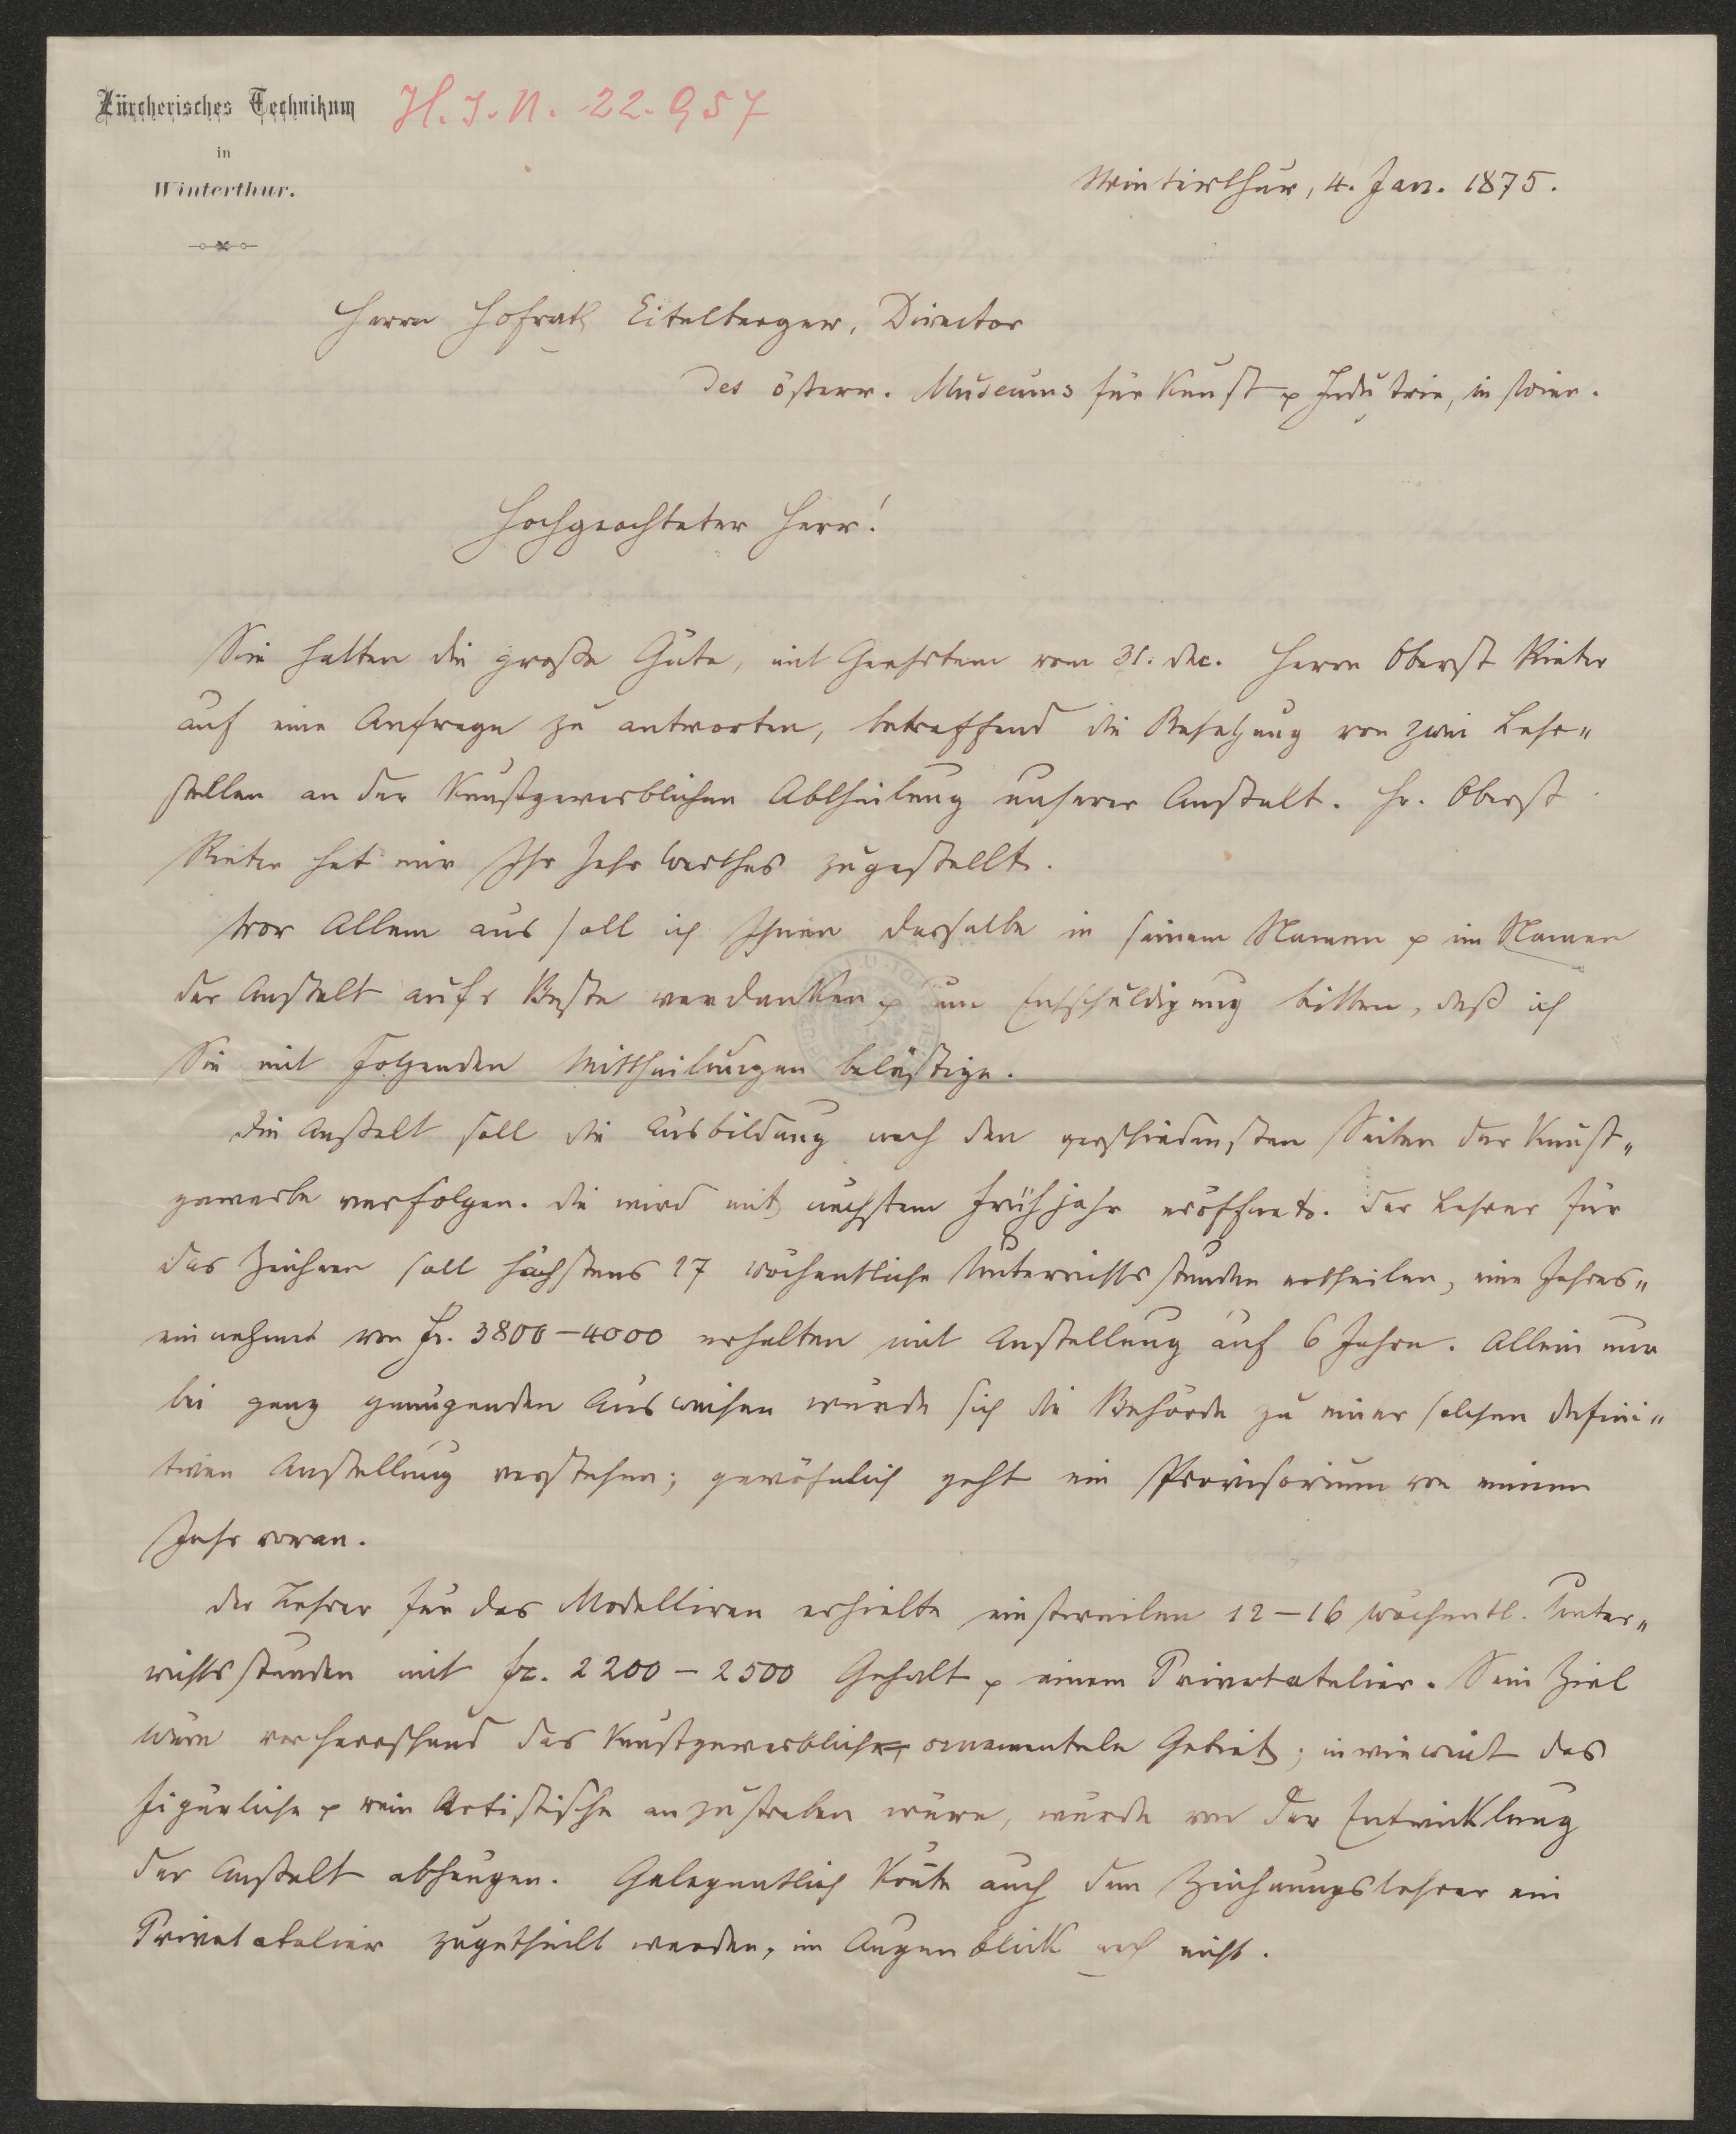 Zürcherisches Technikum
in
Winterthur.
H. I. N. 22.957
Winterthur, 4. Jan. 1875.
Herrn Hofrath Eitelberger, Director
des österr. Museums für Kunst & Industrie, in Wien.
Hochgeachteter Herr!
Sie hatten die große Güte, mit Geehrtem vom 31. Dec. Herrn Oberst Rieter
auf eine Anfrage zu antworten, betreffend die Besetzung von zwei Lehr„
stellen an der Kunstgewerblichen Abtheilung unserer Anstalt. Hr. Oberst
Rieter hat mir Ihr sehr Werthes zugestellt.
Vor Allem aus soll ich Ihnen dasselbe in seinem Namen & im Namen
der Anstalt aufs Beste verdanken & um Entschuldigung bitten, daß ich
Sie mit folgenden Mittheilungen belästige.
Die Anstalt soll die Ausbildung nach den verschiedensten Seiten der Kunst„
gewerbe verfolgen. Sie wird mit nächstem Frühjahr eröffnet. Der Lehrer für
das Zeichnen soll höchstens 27 wöchentliche Unterrichtsstunden ertheilen, eine Jahres„
einnahme von Fr. 3800–4000 erhalten mit Anstellung auf 6 Jahre. Allein nur
bei ganz genügenden Ausweisen würde sich die Behörde zu einer solchen defini„
tiven Anstellung verstehen; gewöhnlich geht ein Provisorium von einem
Jahr voran.
Der Lehrer für das Modelliren erhielte einstweilen 12–16 wöchentl. Unter„
richtsstunden mit Fr. 2200–2500 Gehalt & einem Privatatelier. Sein Ziel
wäre vorherrschend das kunstgewerbliche, ornamentale Gebiet; inwieweit das
Figürliche & rein Artistische anzustreben wäre, würde von der Entwicklung
der Anstalt abhangen. Gelegentlich könte auch dem Zeichnungslehrer ein
Privatatelier zugetheilt werden, im Augenblick noch nicht.